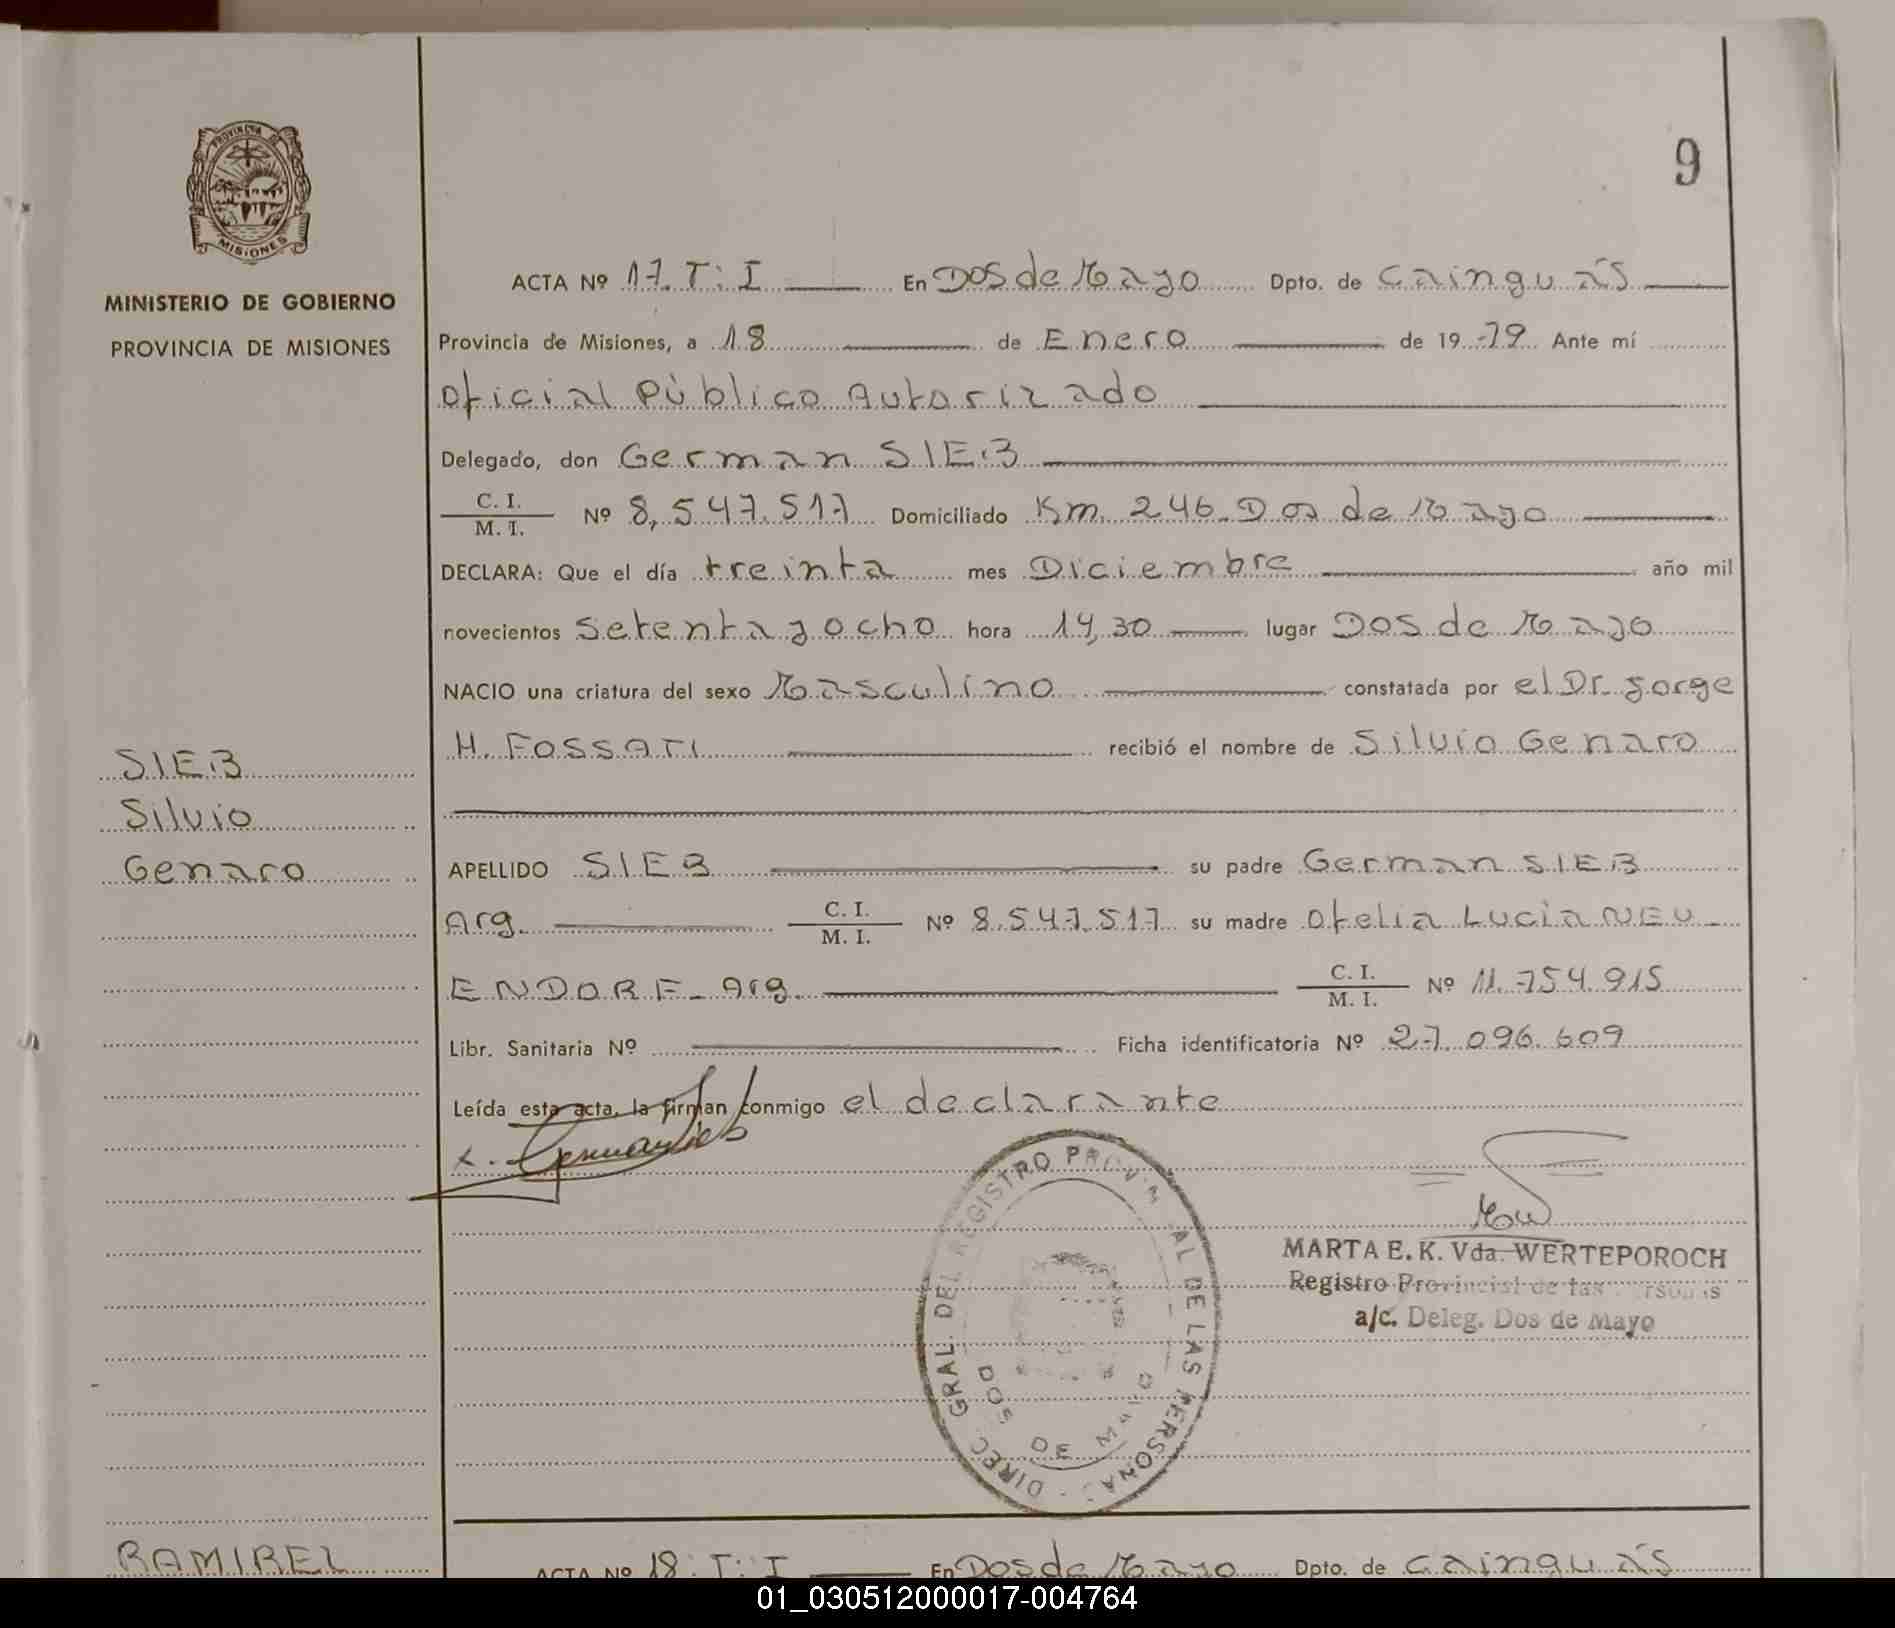 9
PROVINCIA DE
MISIONES
MINISTERIO DE GOBIERNO
PROVINCIA DE MISIONES
SIEB
Silvio
Genaro
ACTA Nº 17. T: I En Dos de Mayo Dpto. de Cainguás
Provincia de Misiones, a 18 de Enero de 19 79 Ante mí
Oficial Público Autorizado
Delegado, don German SIEB
C. I.
M. I. Nº 8,547.517 Domiciliado Km. 246 Dos de Mayo
DECLARA: Que el día treinta mes Diciembre año mil
novecientos setenta y ocho hora 14,30 lugar Dos de Mayo
NACIO una criatura del sexo Masculino constatada por el Dr. Jorge
H. FOSSATI recibió el nombre de Silvio Genaro
APELLIDO SIEB su padre German SIEB
Arg. C. I.
M. I. Nº 8.547.517 su madre Ofelia Lucia NEU-
ENDORF - Arg. C. I.
M. I. Nº 11.754.915
Libr. Sanitaria Nº Ficha identificatoria Nº 27.096.609
Leída esta acta, la firman conmigo el declarante
x.
DIREC. GRAL. DEL REGISTRO PROVINCIAL DE LAS PERSONAS
DOS DE MAYO
MARTA E. K. Vda. WERTEPOROCH
Registro Provincial de las Personas
a/c. Deleg. Dos de Mayo
RAMIREZ
ACTA Nº 18. T: I En Dos de Mayo Dpto. de Cainguás
01_030512000017-004764